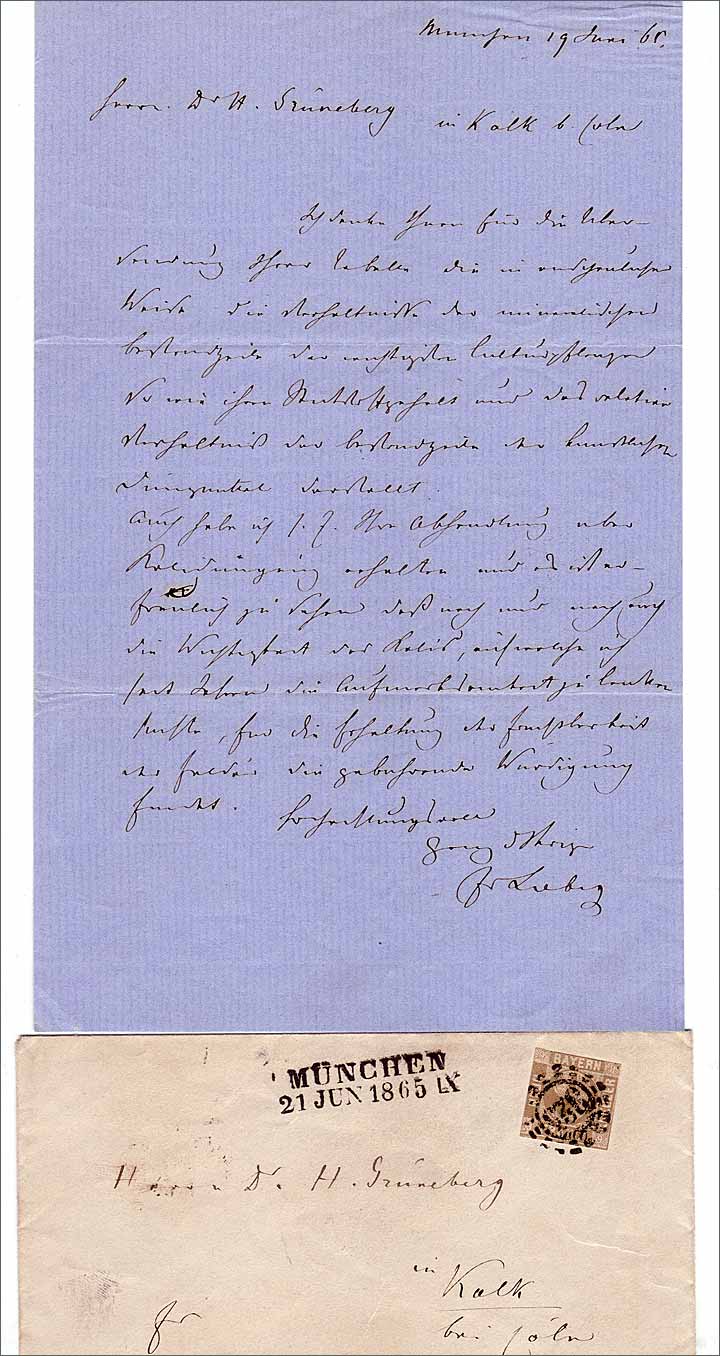 München 19 Juni 65.
Herrn Dr H. Grüneberg
in Kalk b. Cöln
Ich danke Ihnen für die Über-
sendung Ihrer Tabelle die in anschaulicher
Weise die Verhältnisse der mineralischen
Bestandteile der wichtigsten Culturpflanzen
so wie ihren Stickstoffgehalt und das relative
Verhältniß der Bestandteile der künstlichen
Düngmittel darstellt.
Auch habe ich s. Z. Ihre Abhandlung über
Kalidüngung erhalten und es ist er-
freulich zu sehen daß nach und nach auch
die Wichtigkeit des Kalis, auf welche ich
seit Jahren die Aufmerksamkeit zu lenken
suchte, für die Erhaltung der Fruchtbarkeit
der Felder die gebührende Würdigung
findet.
Hochachtungsvoll
ganz d Ihrige
Liebig
MÜNCHEN
21 JUN 1865 IX
BAYERN
Herrn Dr. H. Grüneberg
in
Kalk
bei Cöln
fr